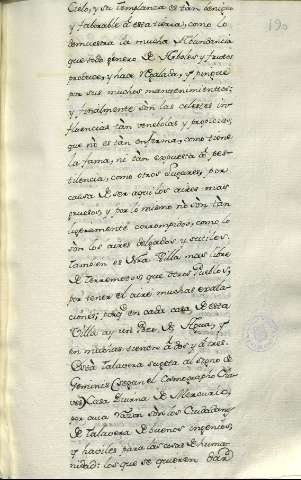 190
Cielo, y su templanza es tan benigno
y faborable á esta tierra, como lo
demuestra la mucha Abundancia
que todo genero de Arboles y frutos
produce, y hace Regalada, y pingue
por sus muchos mantenimientos;
y finalmente son las celestes in-
fluencias tàn venebolas y propicias,
que nò es tàn enferma, como tiene
la fama, ni tàn expuesta á pes-
tilencia, como otros Lugares, por
causa de ser aqui los aires mas
gruesos, y por lo mismo nò son tàn
ligeramente corrompidos, como lo
son los aires delgados y sutiles.
Tambien es Nra Villa mas libre
de Terremotos, que otros Pueblos,
por tener el aire muchas exala-
ciones; porq en cada casa de esta
Villa ay un Pozo de Agua, y
en muchas tienen á dos y á tres.
Està Talavera sugeta al signo de
Geminis (segun el Cosmographo Cha-
ves) Casa Diurna de Mercurio,
por cuia razon son los Ciudadanos
de Talavera de buenos ingenios,
y habiles para las cosas de huma-
nidad: los que se quieren dar á